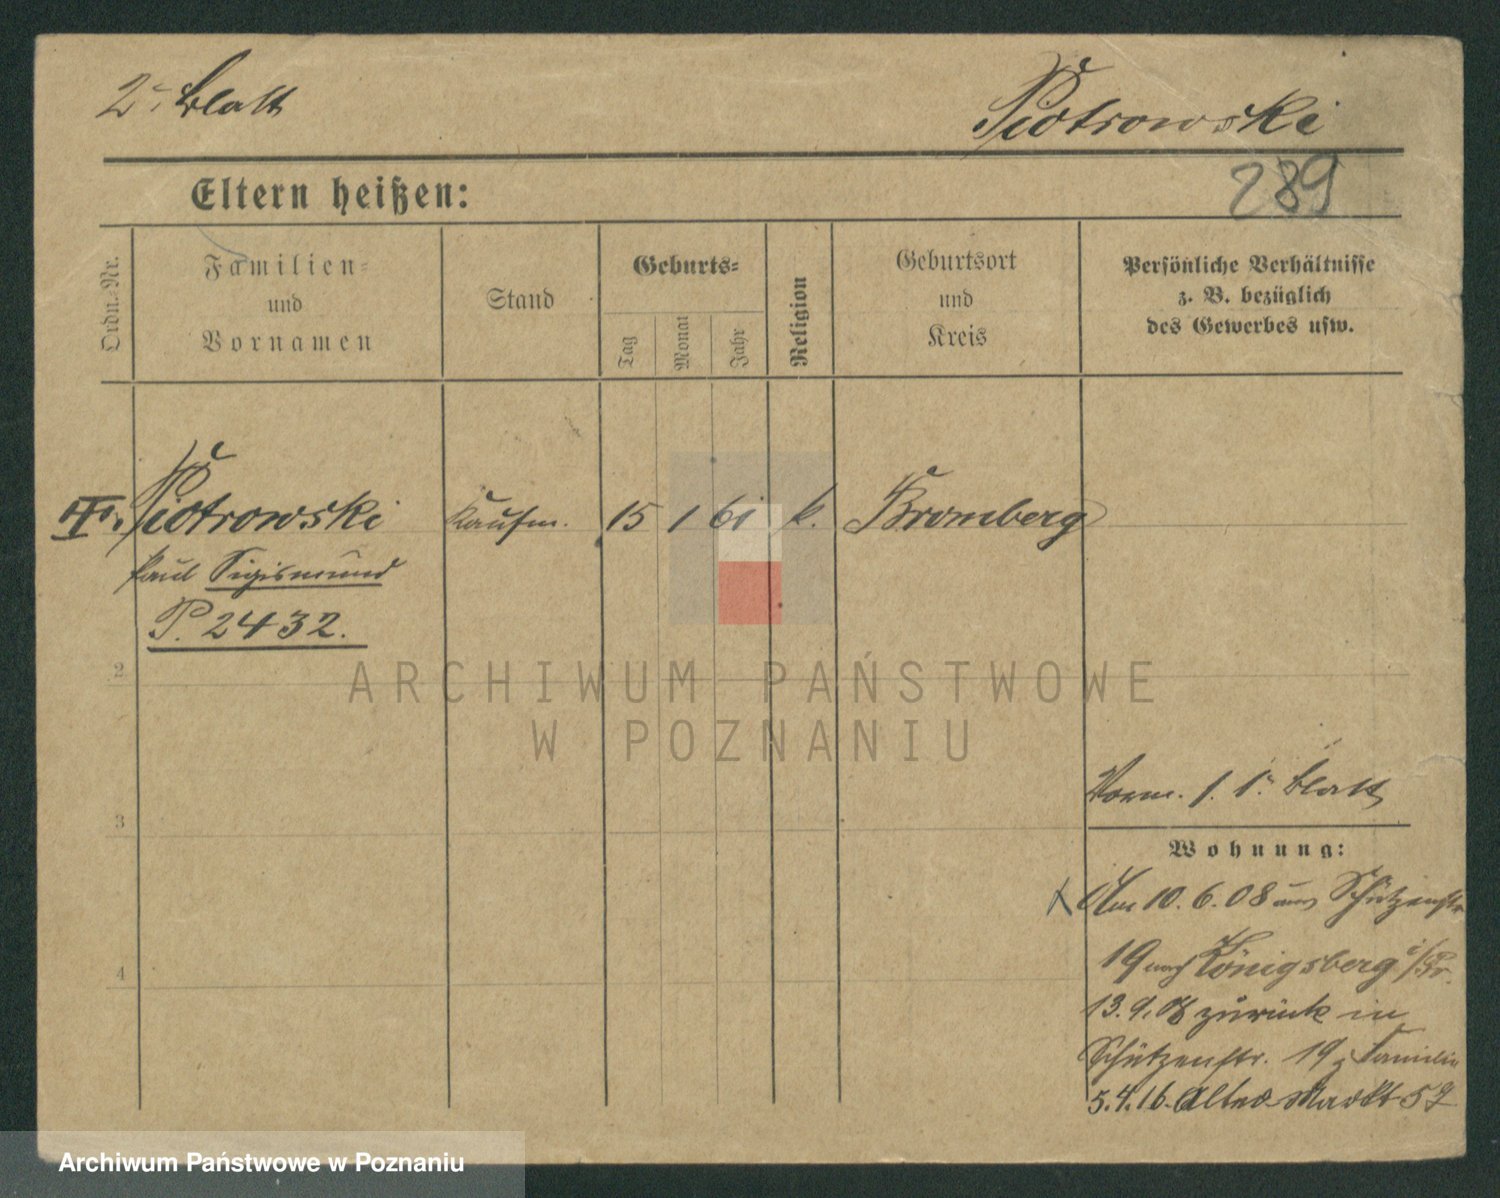 2. Blatt
Piotrowski
289
Eltern heißen:
Ordn.-Nr.
Familien-
und
Vornamen
Stand
Geburts-
Tag
Monat
Jahr
Religion
Geburtsort
und
Kreis
Persönliche Verhältnisse
z. B. bezüglich
des Gewerbes usw.
III. Piotrowski Kaufm. 15 1 61 k. Bromberg
Paul Sigismund
P. 2432.
2
3
4
ARCHIWUM PAŃSTWOWE
W POZNANIU
Vorm. s. 1. Blatt
Wohnung:
Am 10. 6. 08 aus Schützenstr.
19 nach Königsberg i/Pr.
13. 9. 08 zurück in
Schützenstr. 19 z Familie
5. 4. 16. Alter Markt 57
Archiwum Państwowe w Poznaniu